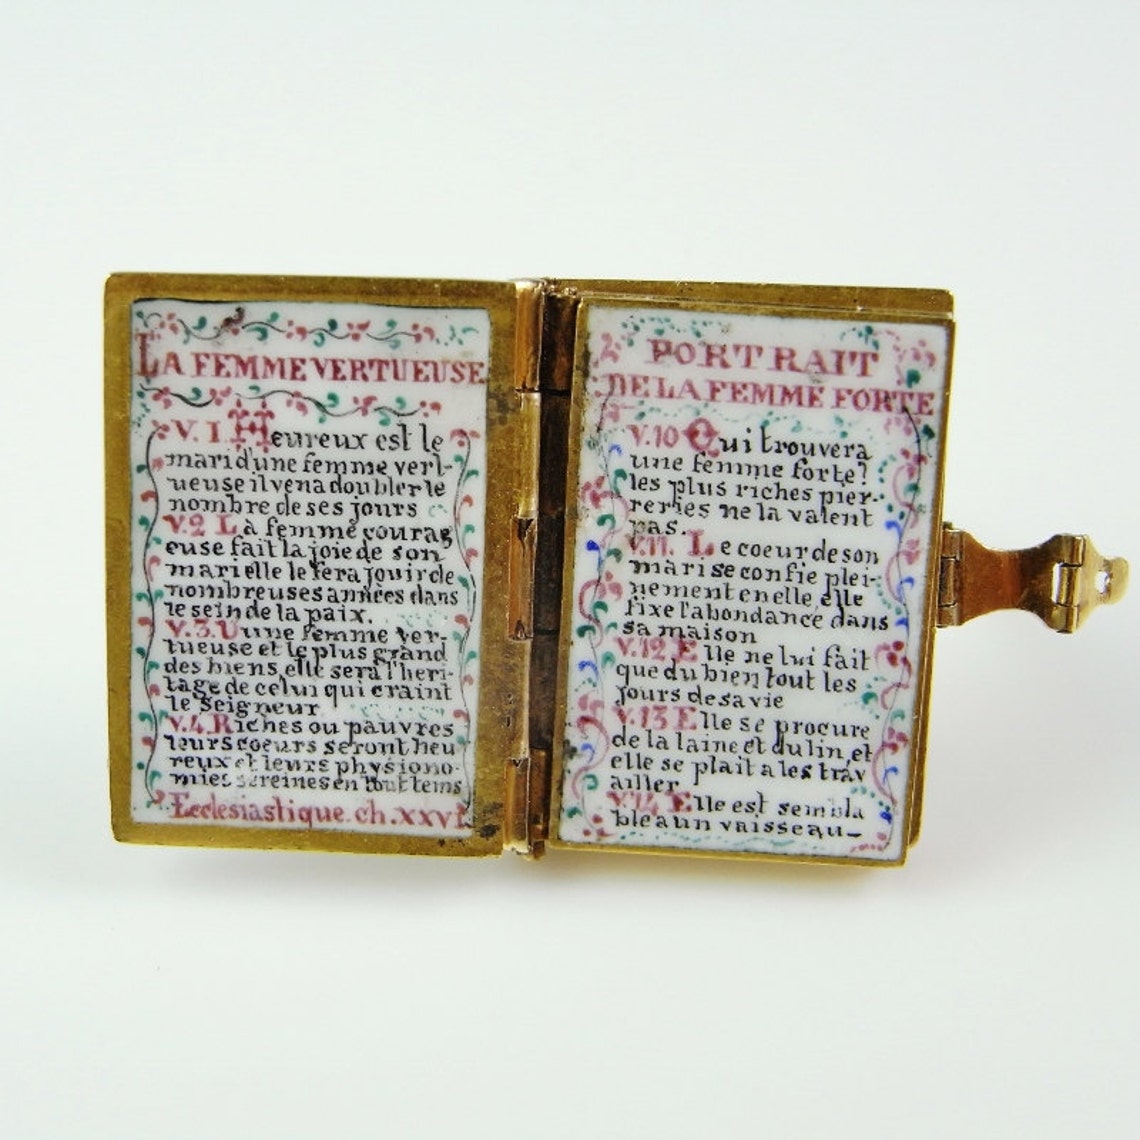 LA FEMME VERTUEUSE
V. 1. Heureux est le
mari d'une femme vert-
ueuse il vena doubler le
nombre de ses jours
V. 2 La femme courag
euse fait la joie de son
mari elle le fera jouir de
nombreuses années dans
le sein de la paix.
V. 3. Uune femme ver-
tueuse et le plus grand
des biens elle sera l'heri-
tage de celui qui craint
le Seigneur
V. 4. Riches ou pauvres
leurs coeurs seront heu
reux et leurs physiono-
mies sereines en tout tems
Ecclesiastique. ch. XXVI
PORTRAIT
DE LA FEMME FORTE
V. 10 Qui trouvera
une femme forte?
les plus riches pier-
reries ne la valent
pas.
V. 11. Le coeur de son
mari se confie plei-
nement en elle, elle
fixe l'abondance dans
sa maison
V. 12 Elle ne lui fait
que du bien tout les
jours de sa vie
V. 13 Elle se procure
de la laine et du lin, et
elle se plait a les trav
ailler
V. 14 Elle est sembla
ble a un vaisseau-